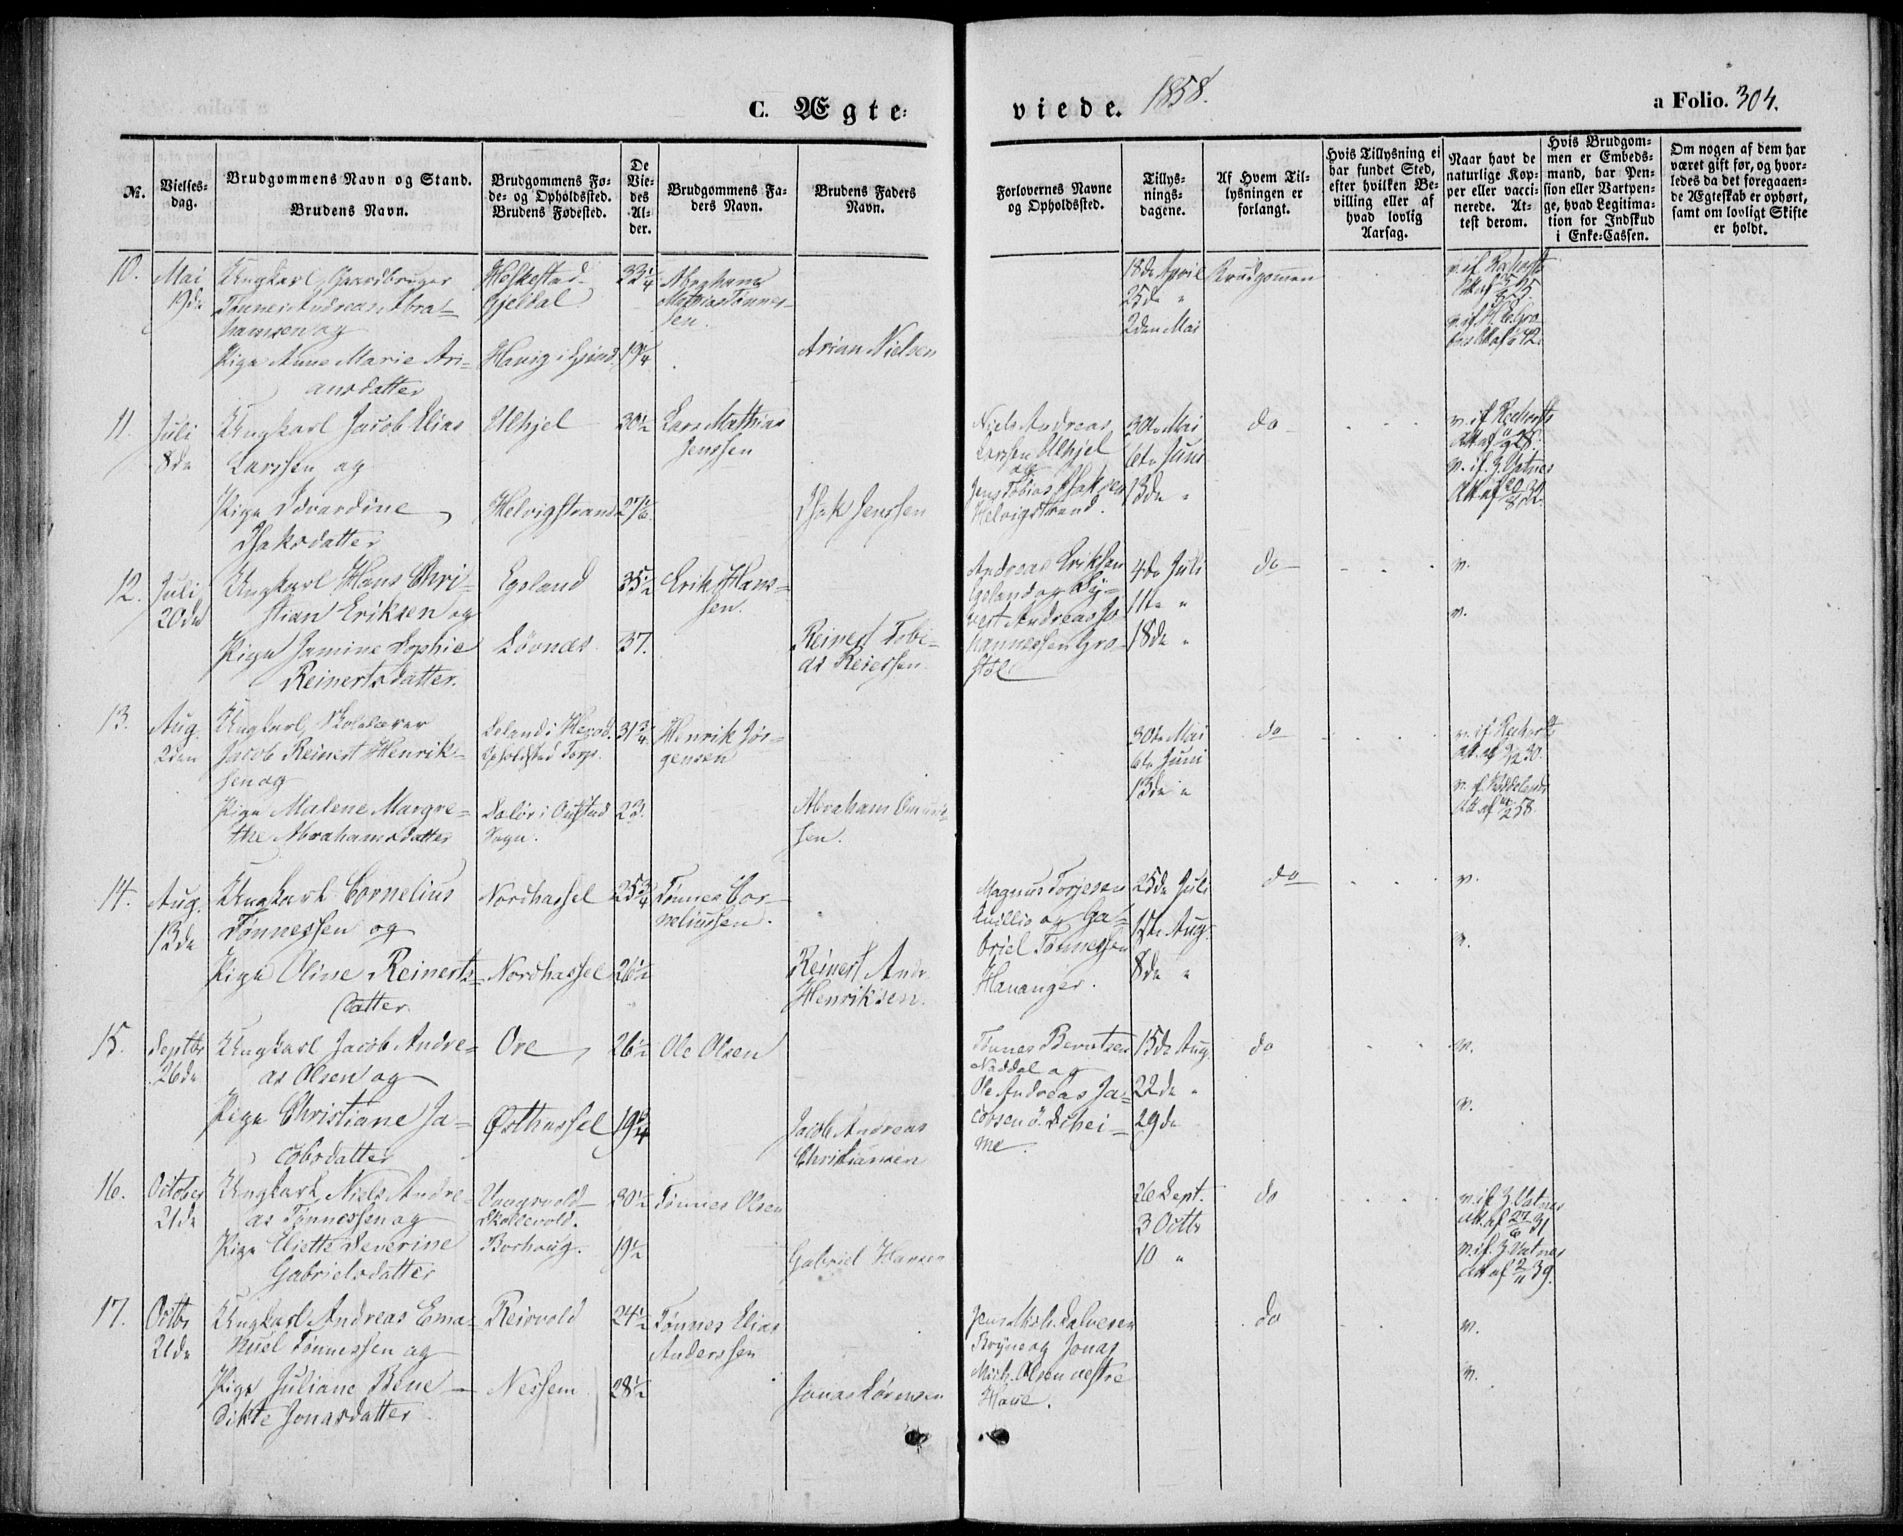 C. Ægte-
viede. 1858.
a Folio. 304.
No.
Vielses-
dag.
Brudgommens Navn og Stand.
Brudens Navn.
Brudgommens Fø-
de- og Opholdssted.
Brudens Fødested.
De
Vie-
des
Al-
der.
Brudgommens Fa-
ders Navn.
Brudens Faders
Navn.
Forlovernes Navne
og Opholdssted.
Tillys-
nings-
dagene.
Af Hvem Til-
lysningen er
forlangt.
Hvis Tillysning ei
har fundet Sted,
efter hvilken Be-
villing eller af
hvad lovlig
Aarsag.
Naar havt de
naturlige Kop-
per eller vacci-
nerede. At-
test derom.
Hvis Brudgom-
men er Embeds-
mand, har Pen-
sion eller Vartpen-
ge, hvad Legitima-
tion for Indskud
i Enke-Cassen.
Om nogen af dem har
været gift før, og hvor-
ledes da det foregaaen-
de Ægteskab er ophørt,
samt om lovligt Skifte
er holdt.
10.
Mai
19de
Ungkarl, Gaardbruger
Tønnes Andreas Abra-
hamsen og
Pige Anne Marie Ari-
ansdatter
Heskestad
Gjeldal
Hervig i
33 1/4
19 1/4
Abraham
Mathias Tønnes-
sen.
Arian Nielsen
18de April
25de "
2den Mai
Brudgommen
11.
Juli
8de
Ungkarl Jacob Elias
Larssen og
Pige Edvardine
Isaksdatter
Ulhjel
Helvigstrand
30 1/2
27 1/6
Lars Mathias
Jenssen
Isak Jenssen
Niels Andreas
Larssen Ulhjel
og
Jens Tobias Isaksen
Helvigstrand.
30te Mai
6te Juni
13de "
do
v. if. Z. Vatnes
12.
Juli
20de
Ungkarl Hans Chri-
stian Eriksen og
Pige Jamine Sophie
Reinertsdatter.
Egeland
Løvnes
35 1/2
37.
Erik Hans-
sen.
Reinert Tobi-
as Reiersen
Andreas Eriksen
Egeland og Sy-
vert Andreas Jo-
hannessen Gro-
støl
4de Juli
11te "
18de "
do
v.
v.
13.
Aug.
2den
Ungkarl, Skolelærer
Jacob Reinert Henrik-
sen og
Pige Malene Margre-
the Abrahamsdatter
Opholdsted Torp.
Sogn.
31 3/4
23.
Henrik Jør-
gensen
Abraham
sen.
30te Mai
6te Juni
13de "
do
14.
Aug.
13de
Ungkarl Cornelius
Tønnessen og
Pige Oline Reinerts-
datter
Nordhassel
Nordhassel
25 3/4
26 1/2
Tønnes Cor-
neliussen.
Reinert Andr.
Henriksen.
Magnus Torjesen
og Ga-
briel Tønnessen
Hananger.
25de Juli
1ste Aug.
8de "
do
v.
v.
15.
Septbr
26de
Ungkarl Jacob Andre-
as Olsen og
Pige Christiane Ja-
cobsdatter
Ore
Østhassel
26 1/2
19 3/4
Ole Olsen
Jacob Andreas
Christiansen
Tønnes Berntsen
Nuddal og
Ole Andreas Ja-
cobsen ø. Skei-
me.
15de Aug.
22de "
29de
do
v.
v.
16.
October
21de
Ungkarl Niels Andre-
as Tønnessen og
Pige Eliette Severine
Gabrielsdatter
Skollevold.
Borhaug.
30 1/2
19 1/2
Tønnes Olsen
Gabriel Hansen
26 Sept.
3 Octbr
10 "
do
v. if. Z. Vatnes
Att. af 27/6 31
v. if. Z. Vatnes
Att af 2/11 39.
17.
Octbr
21de
Ungkarl Andreas Ema-
nuel Tønnessen og
Pige Juliane Bene-
dikte Jonasdatter
Reisvold
Nessem
24 1/2
28 1/2
Tønnes Elias
Anderssen
Jonas Sørensen
Jens Mich. Salvesen
Bryne og Jonas
Mich. Olsen vestre
Haue.
do
v.
v.